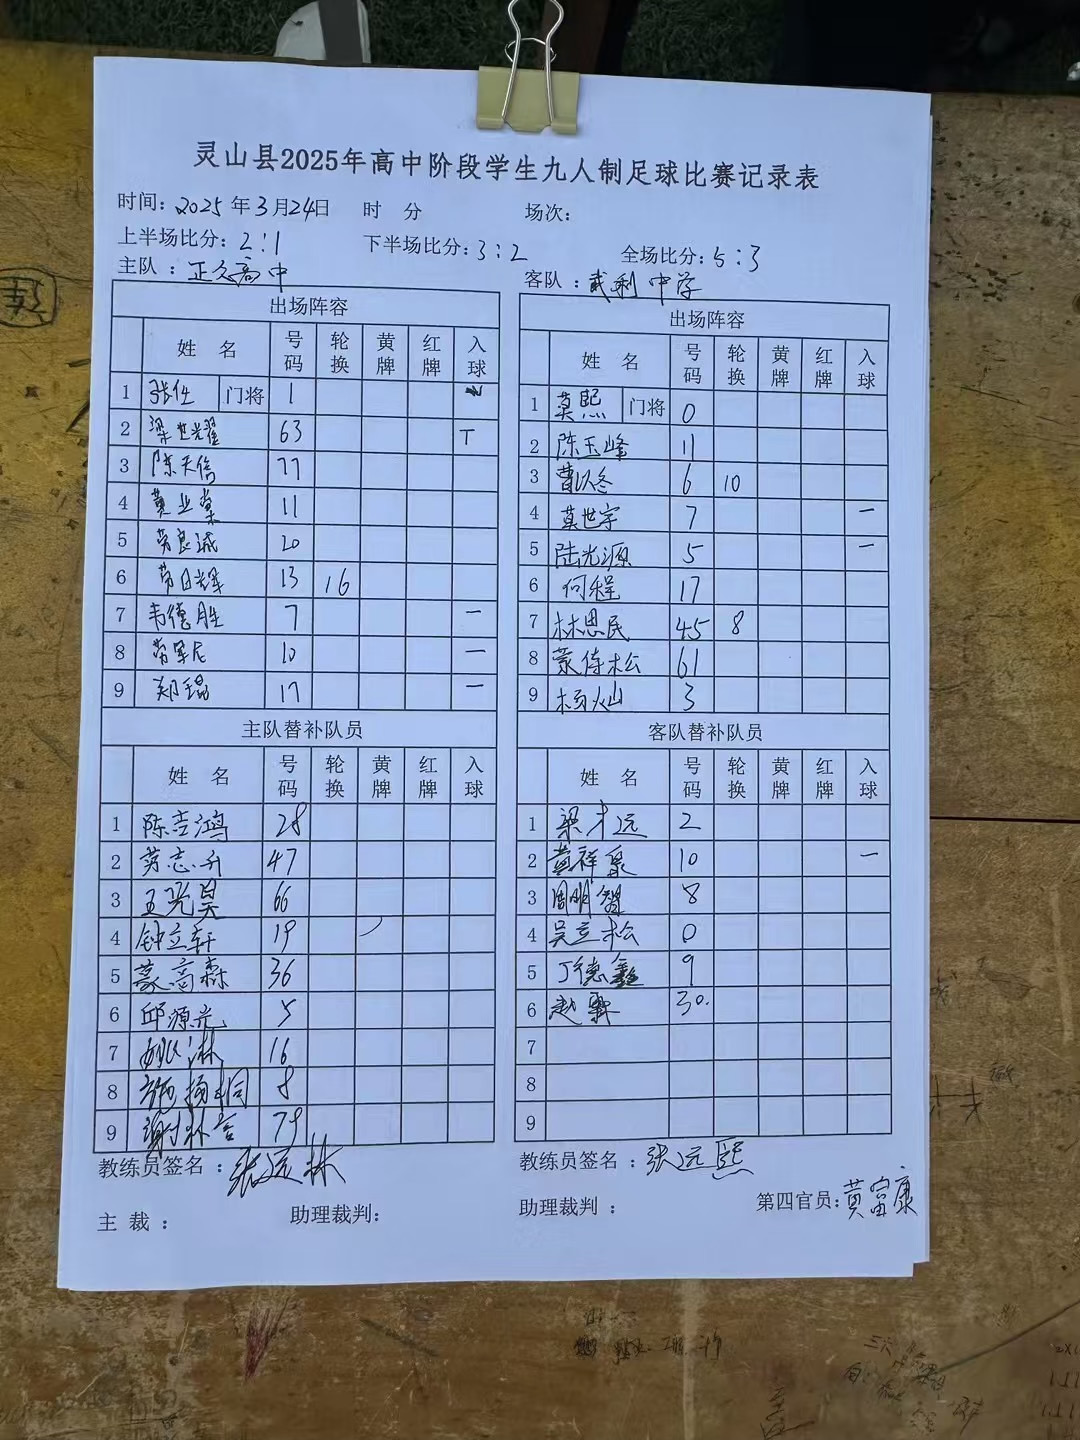 灵山县2025年高中阶段学生九人制足球比赛记录表
时间：2025年3月24日 时 分 场次：
上半场比分：2:1 下半场比分：3:2 全场比分：5:3
主队：正久高中 客队：武利中学
出场阵容
姓 名 号码 轮换 黄牌 红牌 入球
1 张仕 门将 1
2 梁世耀 63 T
3 陈天信 77
4 黄业棠 11
5 劳良诚 20
6 劳日辉 13 16
7 韦德胜 7 一
8 劳军尼 10 一
9 郑锟 17 一
主队替补队员
姓 名 号码 轮换 黄牌 红牌 入球
1 陈吉鸿 28
2 劳志升 47
3 王光昊 66
4 钟立轩 19
5 蒙高森 36
6 邱源光 5
7 16
8 施扬桐 8
9 谢补吉 79
教练员签名：张远林
主 裁： 助理裁判：
出场阵容
姓 名 号码 轮换 黄牌 红牌 入球
1 莫熙 门将 0
2 陈玉峰 11
3 曹以冬 6 10
4 莫世宇 7 一
5 陆光源 5 一
6 何程 17
7 林思民 45 8
8 蒙伟松 61
9 杨火山 3
客队替补队员
姓 名 号码 轮换 黄牌 红牌 入球
1 梁才远 2
2 黄祥泉 10 一
3 周明智 8
4 吴立松 0
5 丁德鑫 9
6 赵霖 30.
7
8
9
教练员签名：张远熙
助理裁判： 第四官员：黄富康